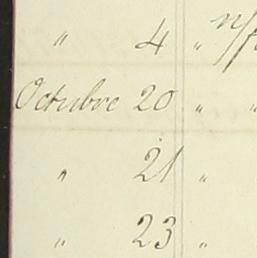 " 4 " n/
Octubre 20 " "
" 21 "
" 23 "